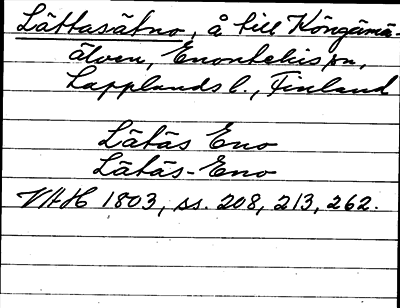 Lättasätno, å till Köngämä-
älven, Enontekis sn,
Lapplands l., Finland
Lätäs Eno
Lätäs-Eno
VAH 1803, ss. 208, 213, 262.